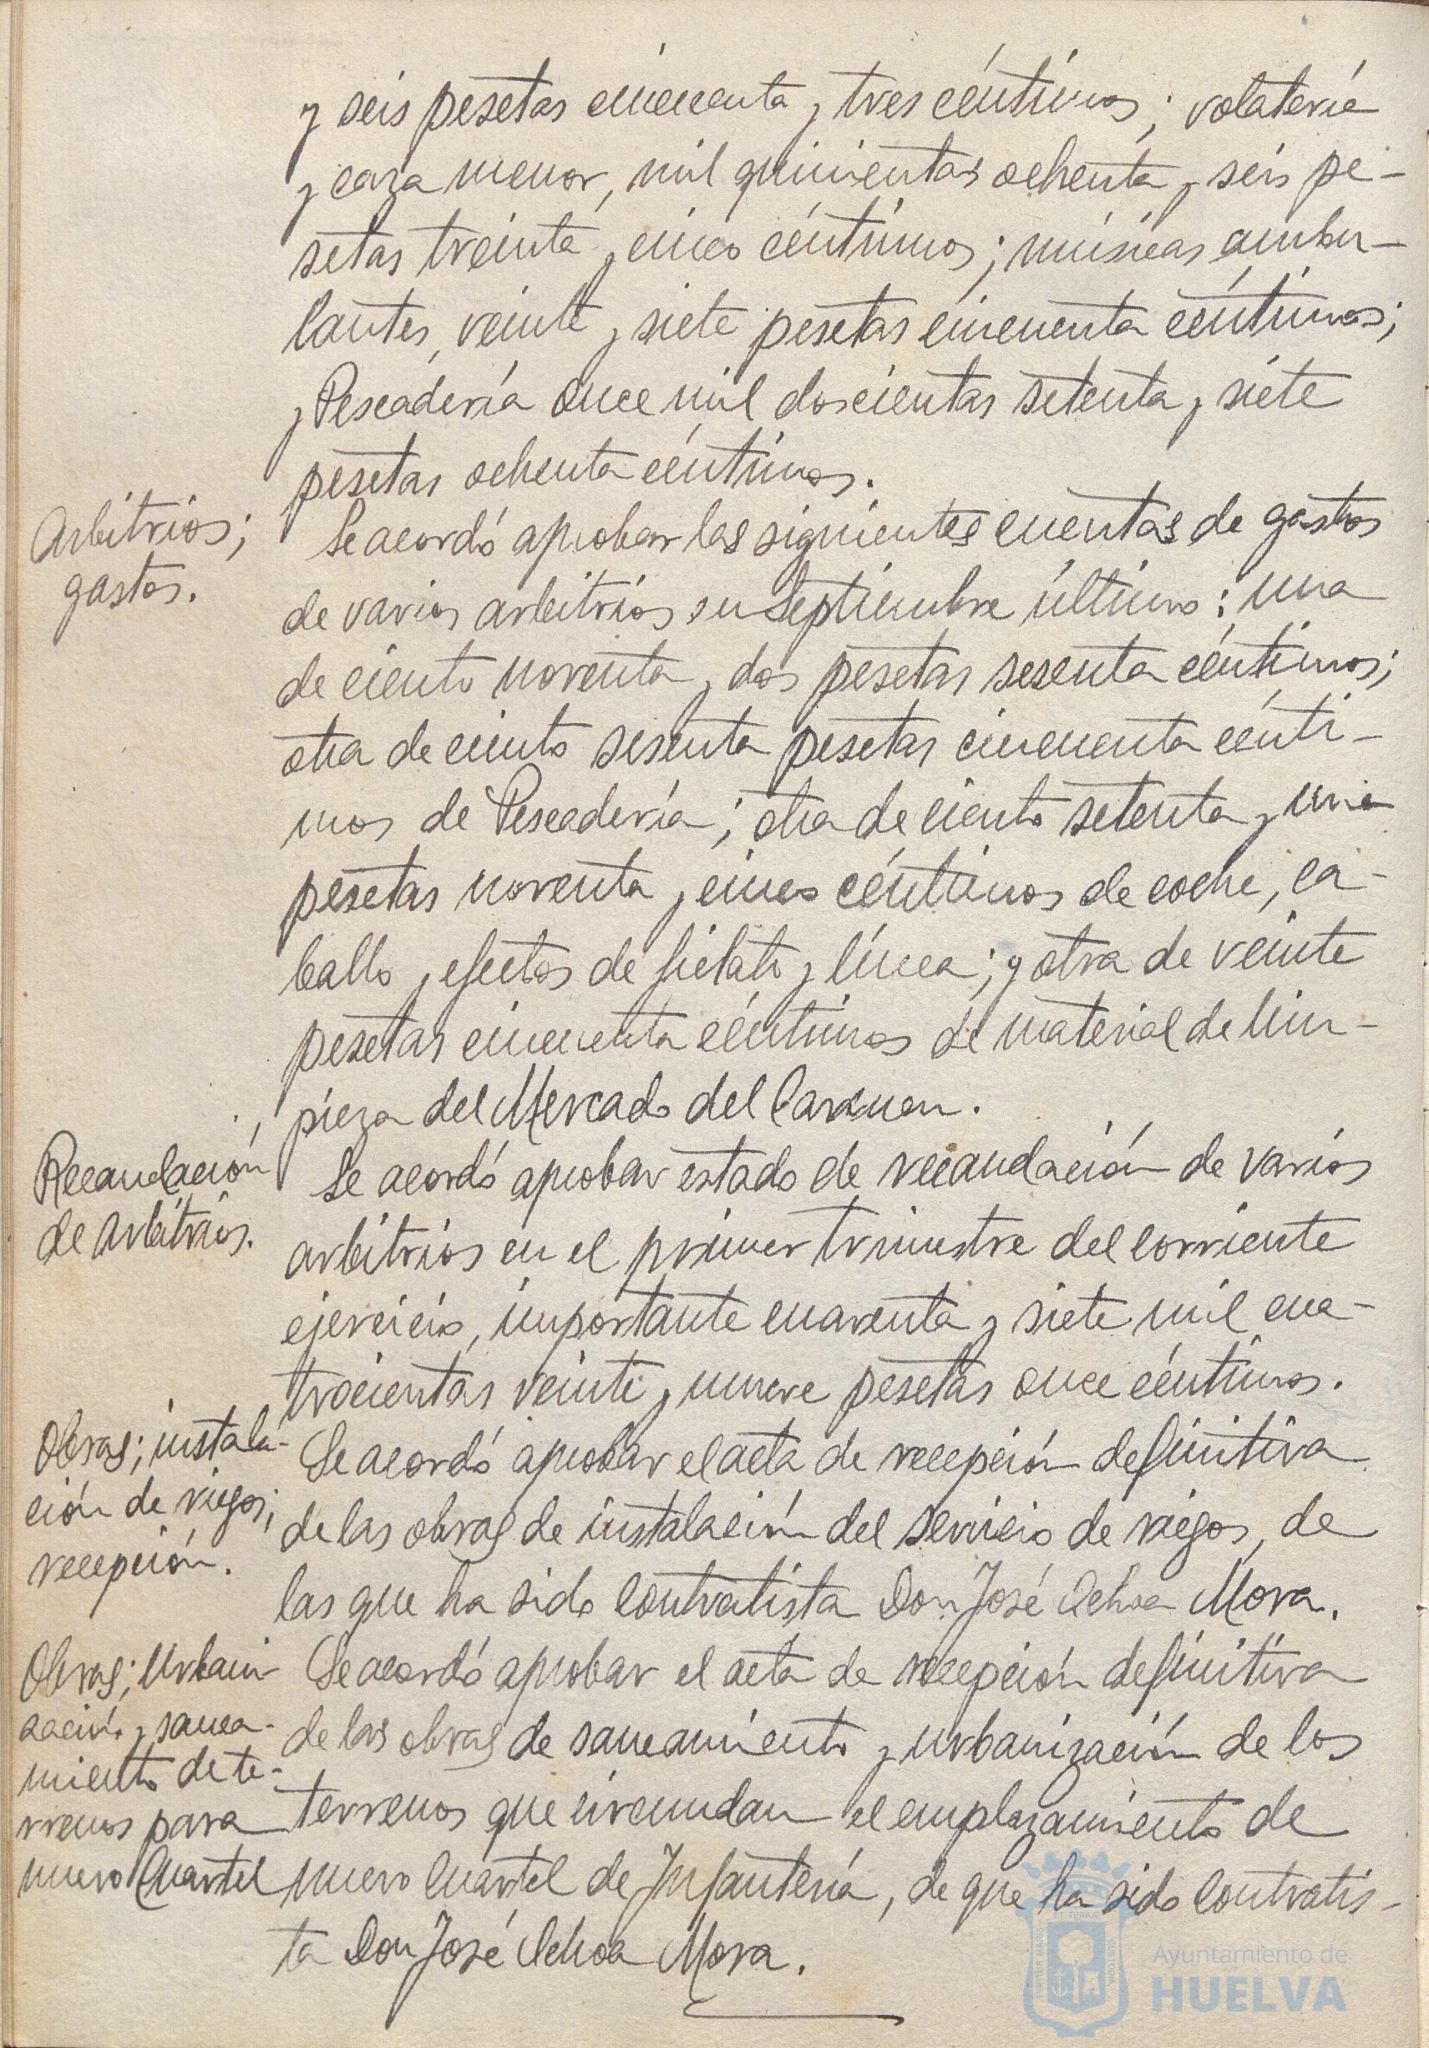 y seis pesetas cincuenta y tres céntimos; volatería
y caza menor, mil quinientas ochenta y seis pe-
setas treinta y cinco céntimos; músicas ambu-
lantes, veinte y siete pesetas cincuenta céntimos;
y Pescadería once mil doscientas setenta y siete
pesetas ochenta céntimos.
Arbitrios;
gastos.
Se acordó aprobar las siguientes cuentas de gastos
de varios arbitrios en Septiembre último: una
de ciento noventa y dos pesetas sesenta céntimos;
otra de ciento sesenta pesetas cincuenta cénti-
mos de Pescadería; otra de ciento setenta y una
pesetas noventa y cinco céntimos de coche, ca-
ballo y efectos de fielato y línea; y otra de veinte
pesetas cincuenta céntimos de material de lim-
pieza del Mercado del Carmen.
Recaudación
de arbitrios.
Se acordó aprobar estado de recaudación de varios
arbitrios en el primer trimestre del corriente
ejercicio, importante cuarenta y siete mil cua-
trocientas veinte y nueve pesetas once céntimos.
Obras; instala-
ción de riegos;
recepción.
Se acordó aprobar el acta de recepción definitiva
de las obras de instalación del servicio de riegos, de
las que ha sido contratista Don José Ochoa Mora.
Obras; Urbani-
zación y sanea-
miento de te-
rrenos para
nuevo Cuartel
Se acordó aprobar el acta de recepción definitiva
de las obras de saneamiento y urbanización de los
terrenos que circundan el emplazamiento de
nuevo Cuartel de Infantería, de que ha sido contratis-
ta Don José Ochoa Mora.
Ayuntamiento de
HUELVA